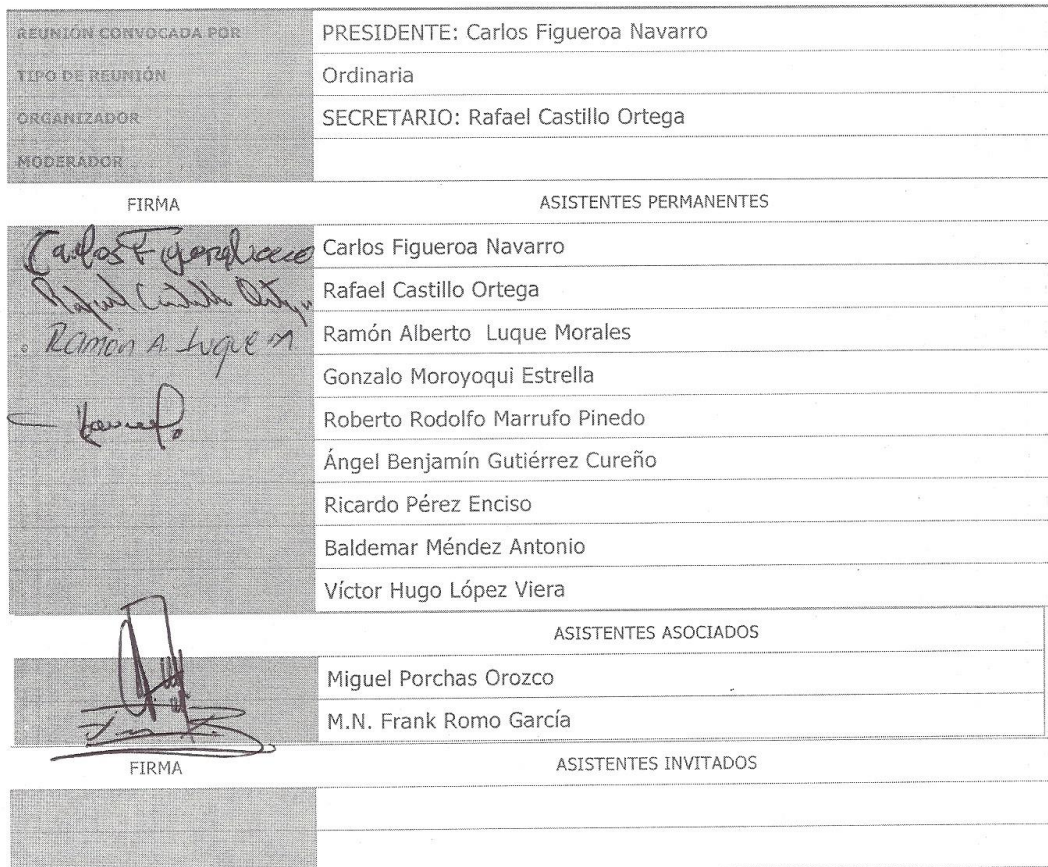 REUNIÓN CONVOCADA POR PRESIDENTE: Carlos Figueroa Navarro
TIPO DE REUNIÓN Ordinaria
ORGANIZADOR SECRETARIO: Rafael Castillo Ortega
MODERADOR
FIRMA ASISTENTES PERMANENTES
Carlos Figueroa Navarro
Rafael Castillo Ortega Rafael Castillo Ortega
Ramón A. Luque M Ramón Alberto Luque Morales
Gonzalo Moroyoqui Estrella
Roberto Rodolfo Marrufo Pinedo
Ángel Benjamín Gutiérrez Cureño
Ricardo Pérez Enciso
Baldemar Méndez Antonio
Víctor Hugo López Viera
ASISTENTES ASOCIADOS
Miguel Porchas Orozco
M.N. Frank Romo García
FIRMA ASISTENTES INVITADOS